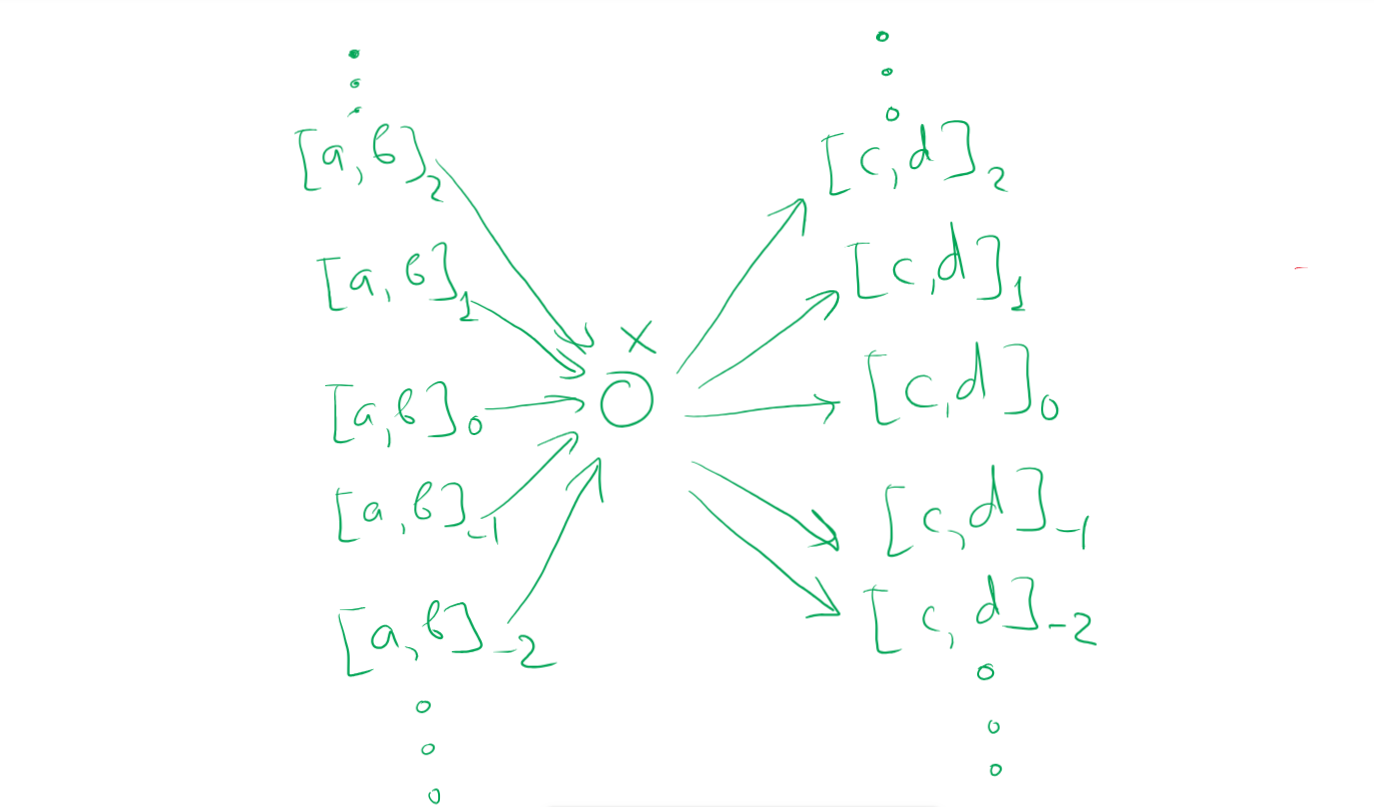 [a, b]₂
[a, b]₁
[a, b]₀
[a, b]₋₁
[a, b]₋₂
x
[c, d]₂
[c, d]₁
[c, d]₀
[c, d]₋₁
[c, d]₋₂